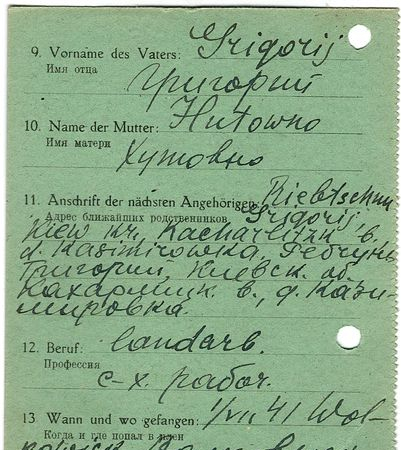 9. Vorname des Vaters: Grigorij
Имя отца
Григорий
10. Name der Mutter: Hutowno
Имя матери
Хутовно
11. Anschrift der nächsten Angehörigen: Riebtschun
Адрес ближайших родственников Grigorij,
Kiew kr. Kacharlitzk b.
d. Kasimirowka, Гебчунь
Григорий, Киевск. об.
Кахарлицк. в., д. Кази-
мировка.
12. Beruf: Landarb.
Профессия
с-х. рабоч.
13 Wann und wo gefangen: 1/VII 41 Wol-
Когда и где попал в плен